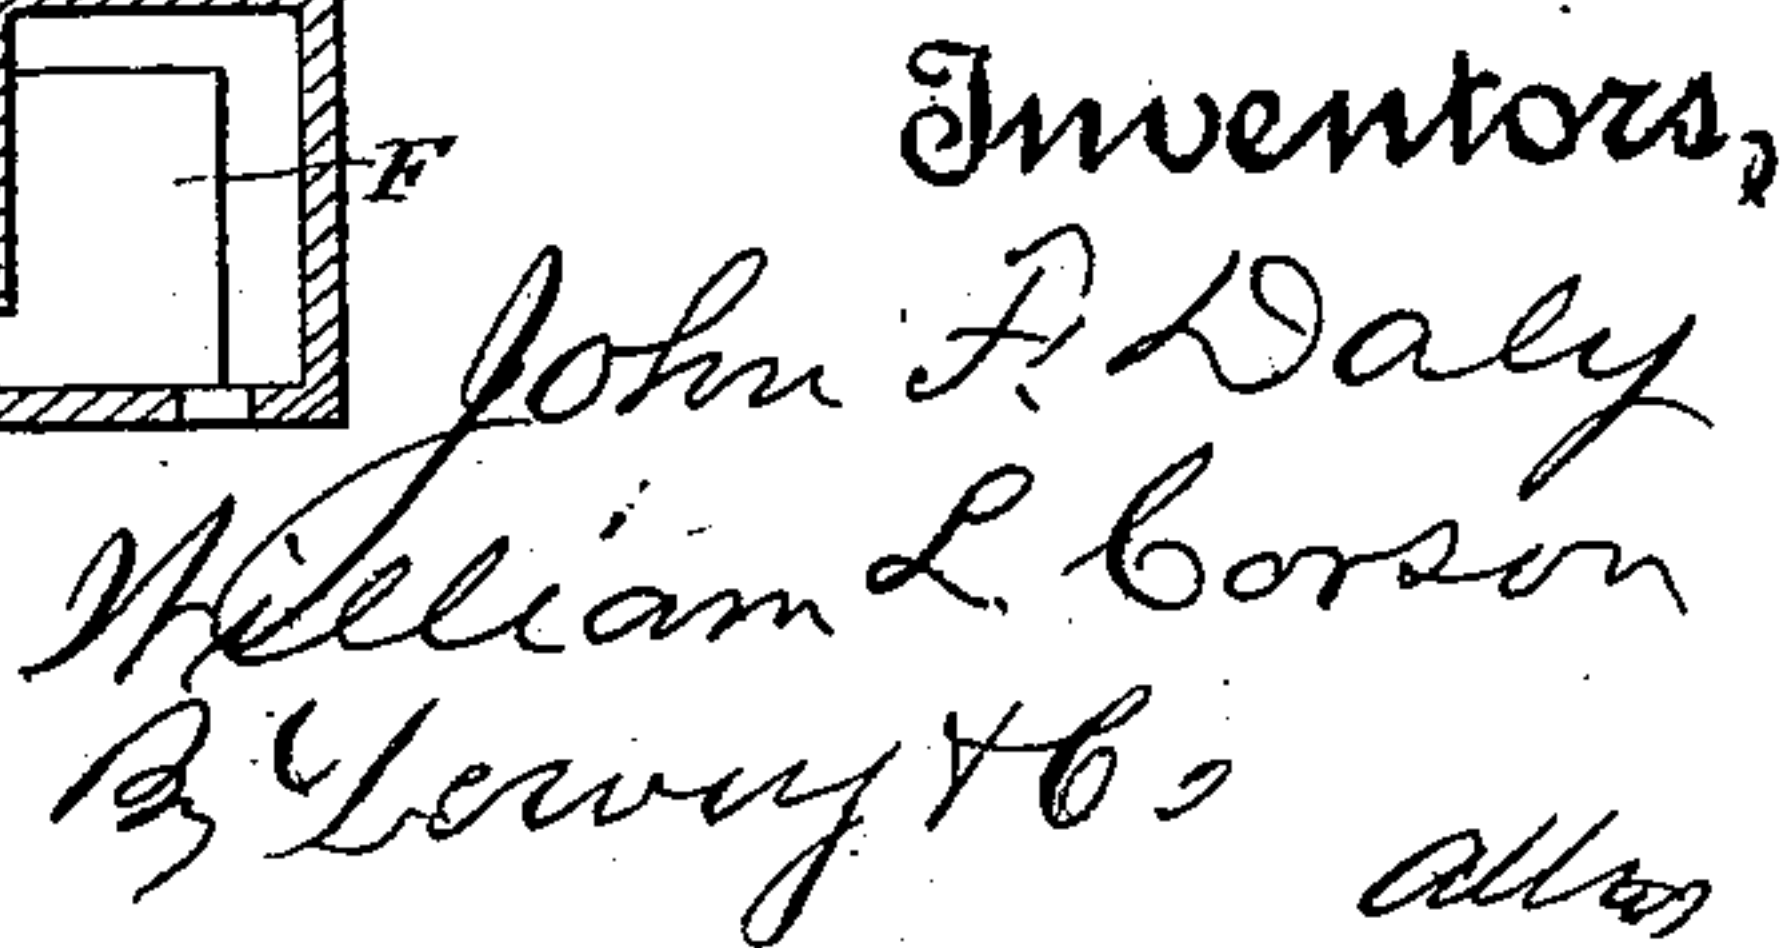 F
Inventors,
John F. Daly
William L. Corson
By & Co
Attys